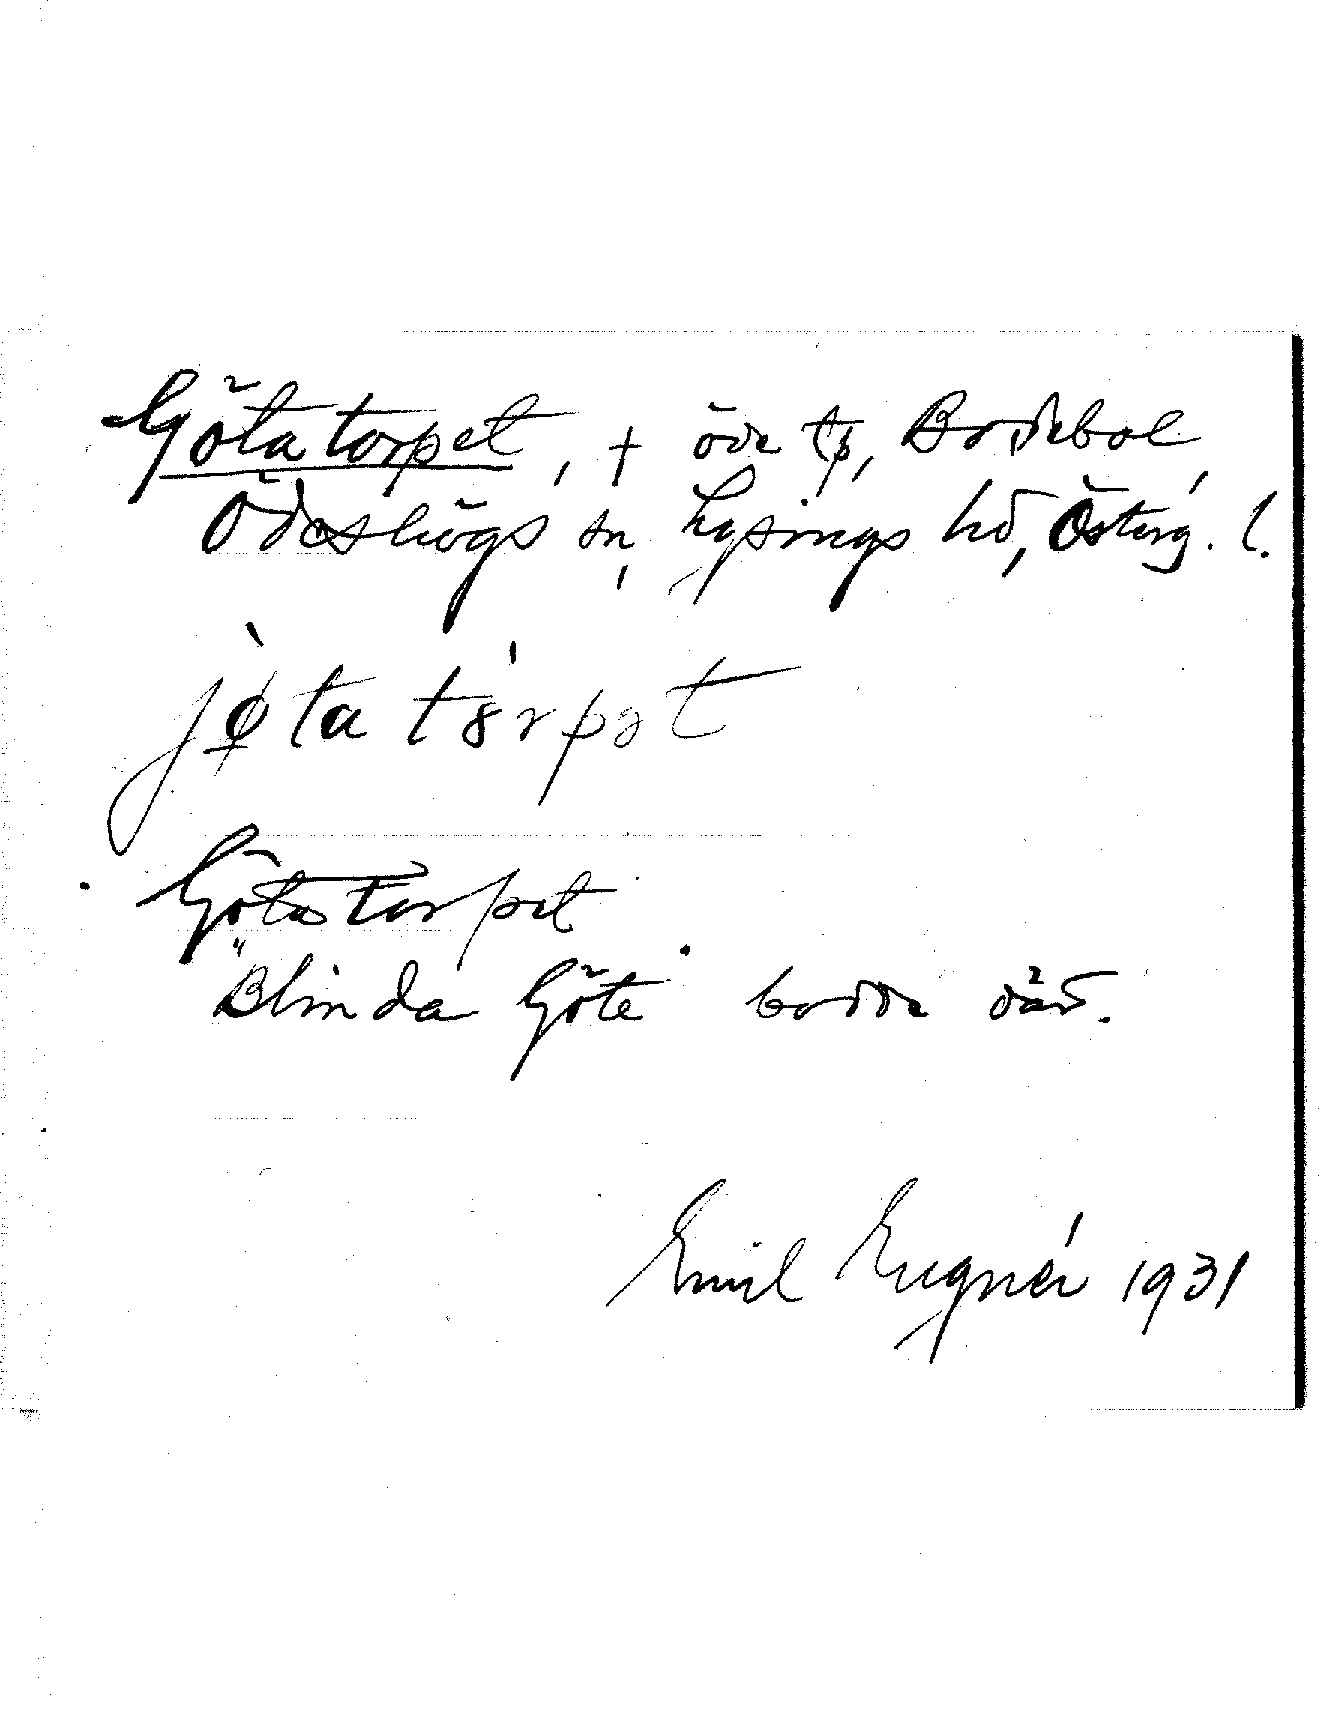 Götatorpet, † öde tp, Bodebol,
Ödeshögs sn, Lysings hd, Österg. l.
jø̀ta tórpət
Götatorpet
"Blinda Göte" bodde där.
Emil Eugnér 1931